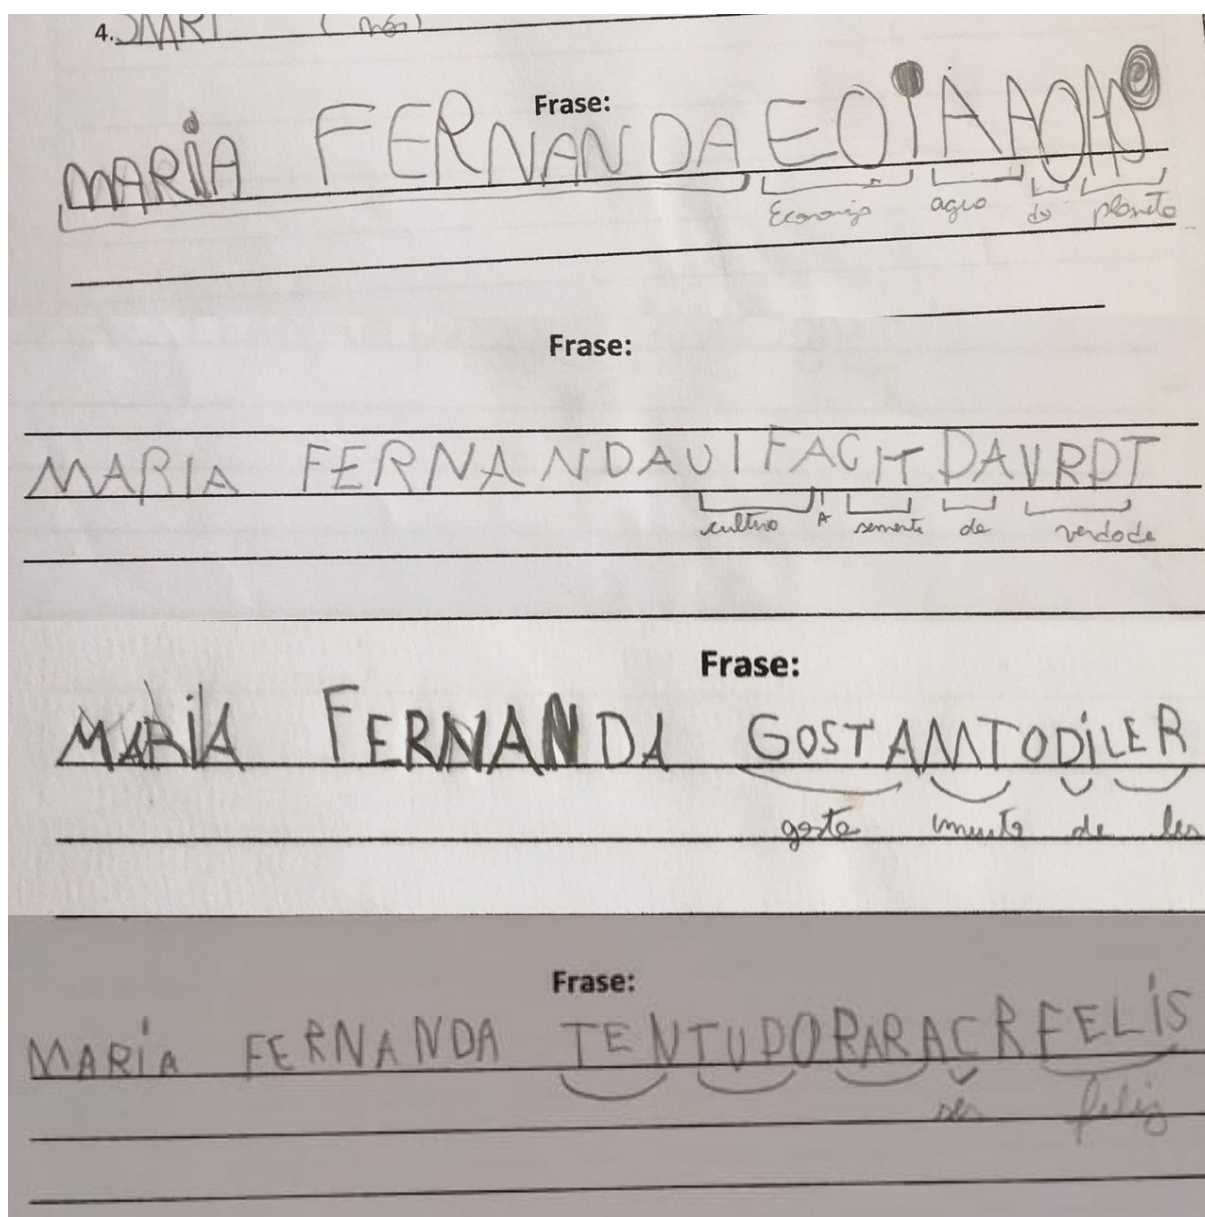 4. SMRT (nós)
Frase:
MARIA FERNANDA EOIAAOAO
Economiza agua do planeta
Frase:
MARIA FERNANDAUIFACIT DAVRDT
cultiva A semente da verdade
Frase:
MARIA FERNANDA GOSTAMTODILER
gosta muito de ler
Frase:
MARIA FERNANDA TENTUDOPARACRFELIS
ser feliz